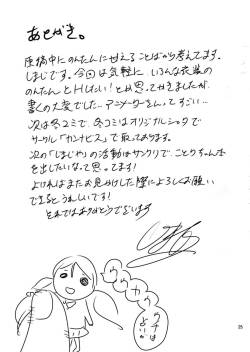 あとがき。
原稿中にのんたんに甘えることばかり考えてます。
しまじです。今回は気軽に いろんな衣装の
のんたんとHしたい!とか思ってかきましたが
書くの大変でした… アニメーターさんってすごい…
次は冬コミで 冬コミはオリジナルショタで
サークル「カンナビス」で取ってあります。
次の「しまじや」の活動はサンクリで、ことりちゃん本
を出したいなって思ってます!
よければまたお見かけした際によろしくお願い
できるとうれしいです!
それではありがとうございます
25